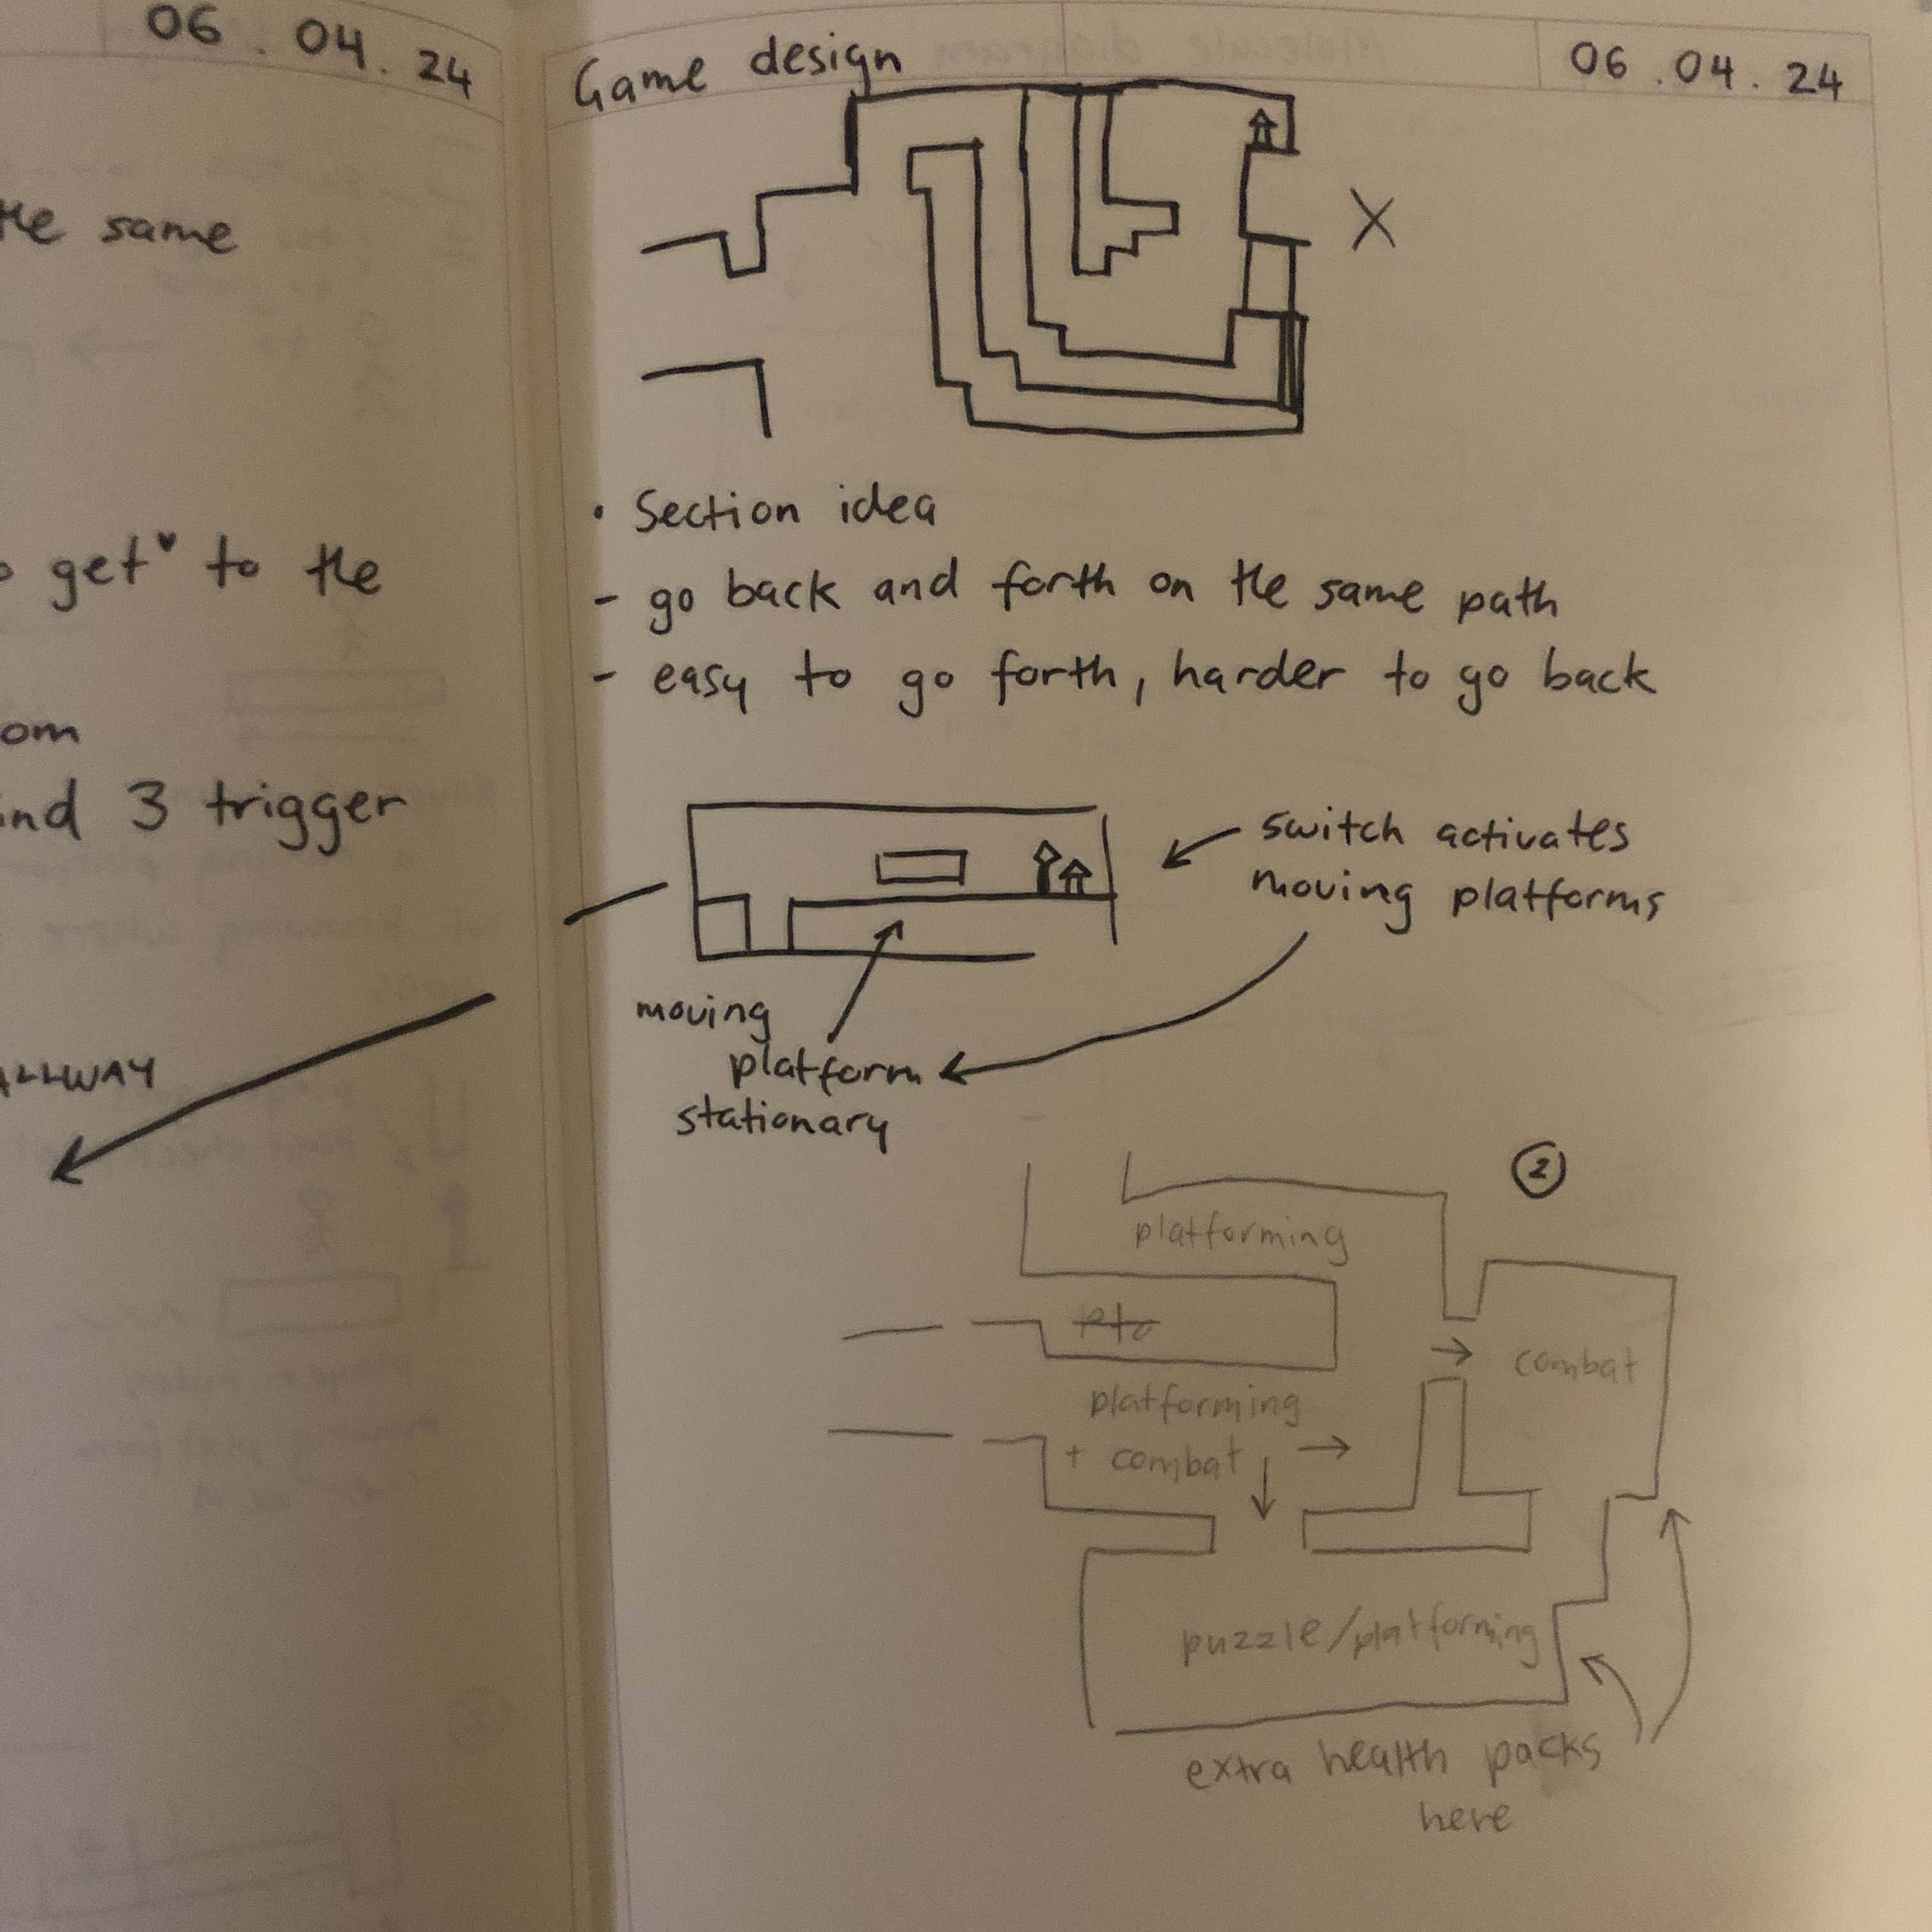 06.04.24
the same
get to the
3 trigger
Game design
06.04.24
X
• Section idea
- go back and forth on the same path
- easy to go forth, harder to go back
switch activates
moving platforms
moving
platform
stationary
2
platforming
combat
platforming
+ combat
puzzle/platforming
extra health packs
here